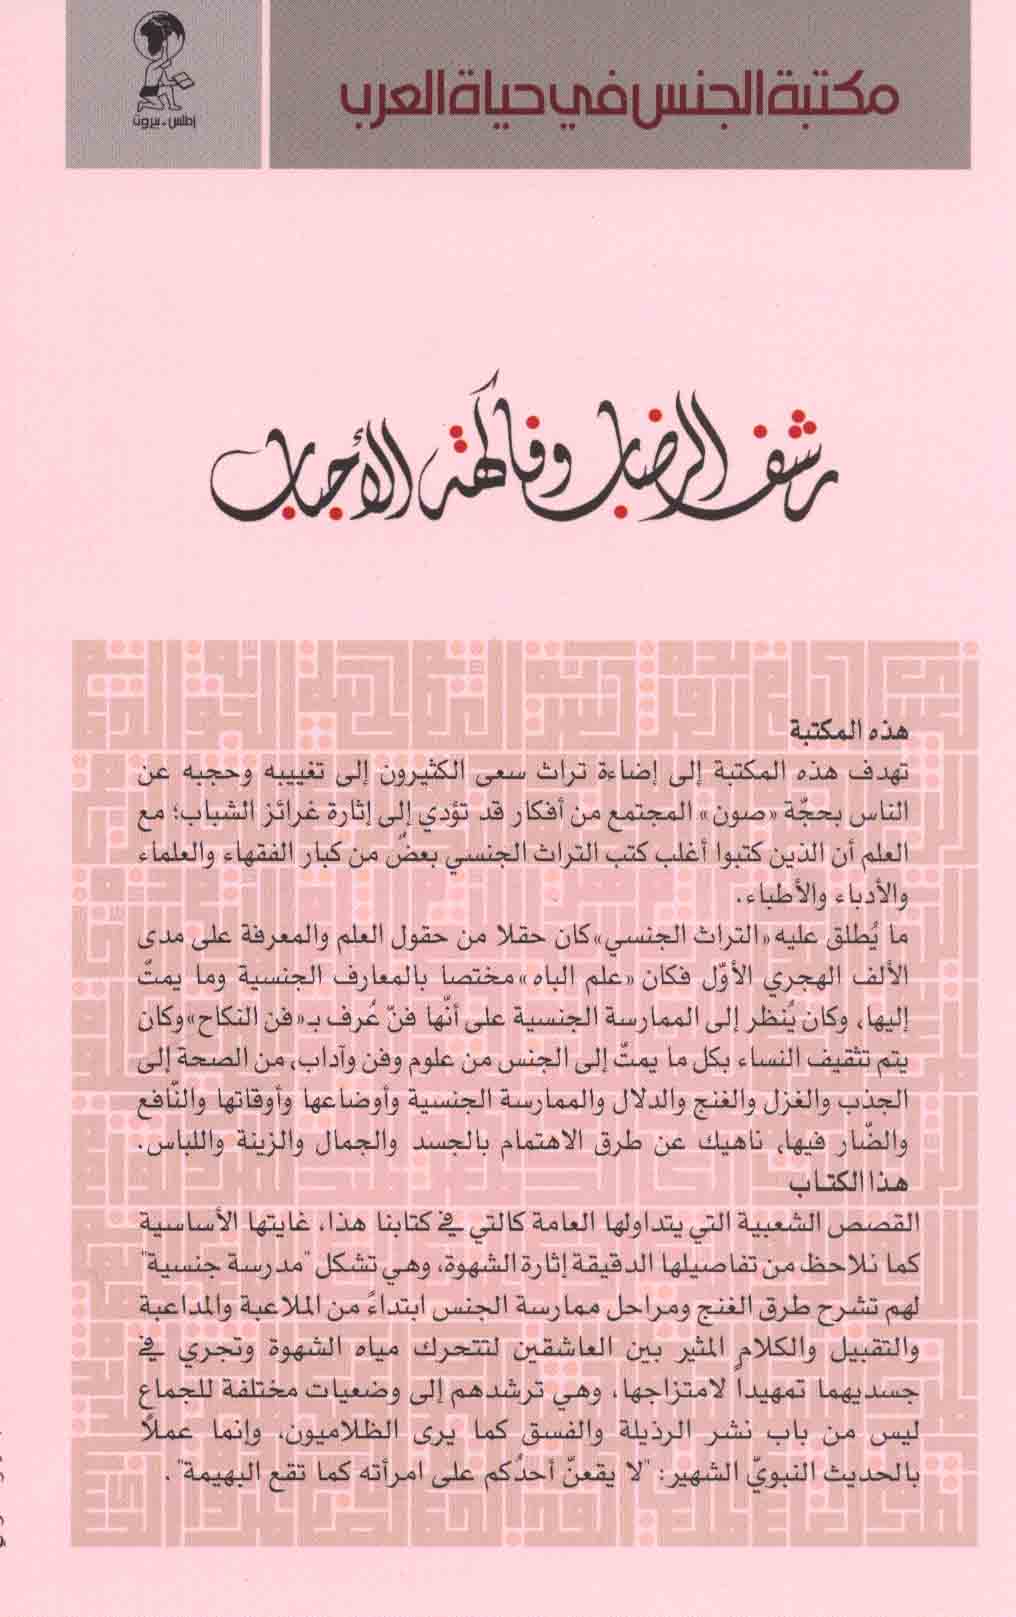 مكتبة الجنس في حياة العرب
أطلس - بيروت
رشف الرضاب وفاكهة الأحباب
هذه المكتبة
تهدف هذه المكتبة إلى إضاءة تراث سعى الكثيرون إلى تغييبه وحجبه عن
الناس بحجّة «صون» المجتمع من أفكار قد تؤدي إلى إثارة غرائز الشباب؛ مع
العلم أن الذين كتبوا أغلب كتب التراث الجنسي بعضٌ من كبار الفقهاء والعلماء
والأدباء والأطباء.
ما يُطلق عليه «التراث الجنسي» كان حقلا من حقول العلم والمعرفة على مدى
الألف الهجري الأوّل فكان «علم الباه» مختصا بالمعارف الجنسية وما يمتّ
إليها، وكان يُنظر إلى الممارسة الجنسية على أنّها فنّ عُرف بـ«فن النكاح» وكان
يتم تثقيف النساء بكل ما يمتّ إلى الجنس من علوم وفن وآداب، من الصحة إلى
الجذب والغزل والغنج والدلال والممارسة الجنسية وأوضاعها وأوقاتها والنّافع
والضّار فيها، ناهيك عن طرق الاهتمام بالجسد والجمال والزينة واللباس.
هذا الكتاب
القصص الشعبية التي يتداولها العامة كالتي في كتابنا هذا، غايتها الأساسية
كما نلاحظ من تفاصيلها الدقيقة إثارة الشهوة، وهي تشكل "مدرسة جنسية"
لهم تشرح طرق الغنج ومراحل ممارسة الجنس ابتداءً من الملاعبة والمداعبة
والتقبيل والكلام المثير بين العاشقين لتتحرك مياه الشهوة وتجري في
جسديهما تمهيداً لامتزاجها، وهي ترشدهم إلى وضعيات مختلفة للجماع
ليس من باب نشر الرذيلة والفسق كما يرى الظلاميون، وإنما عملاً
بالحديث النبويّ الشهير: "لا يقعنّ أحدُكم على امرأته كما تقع البهيمة".